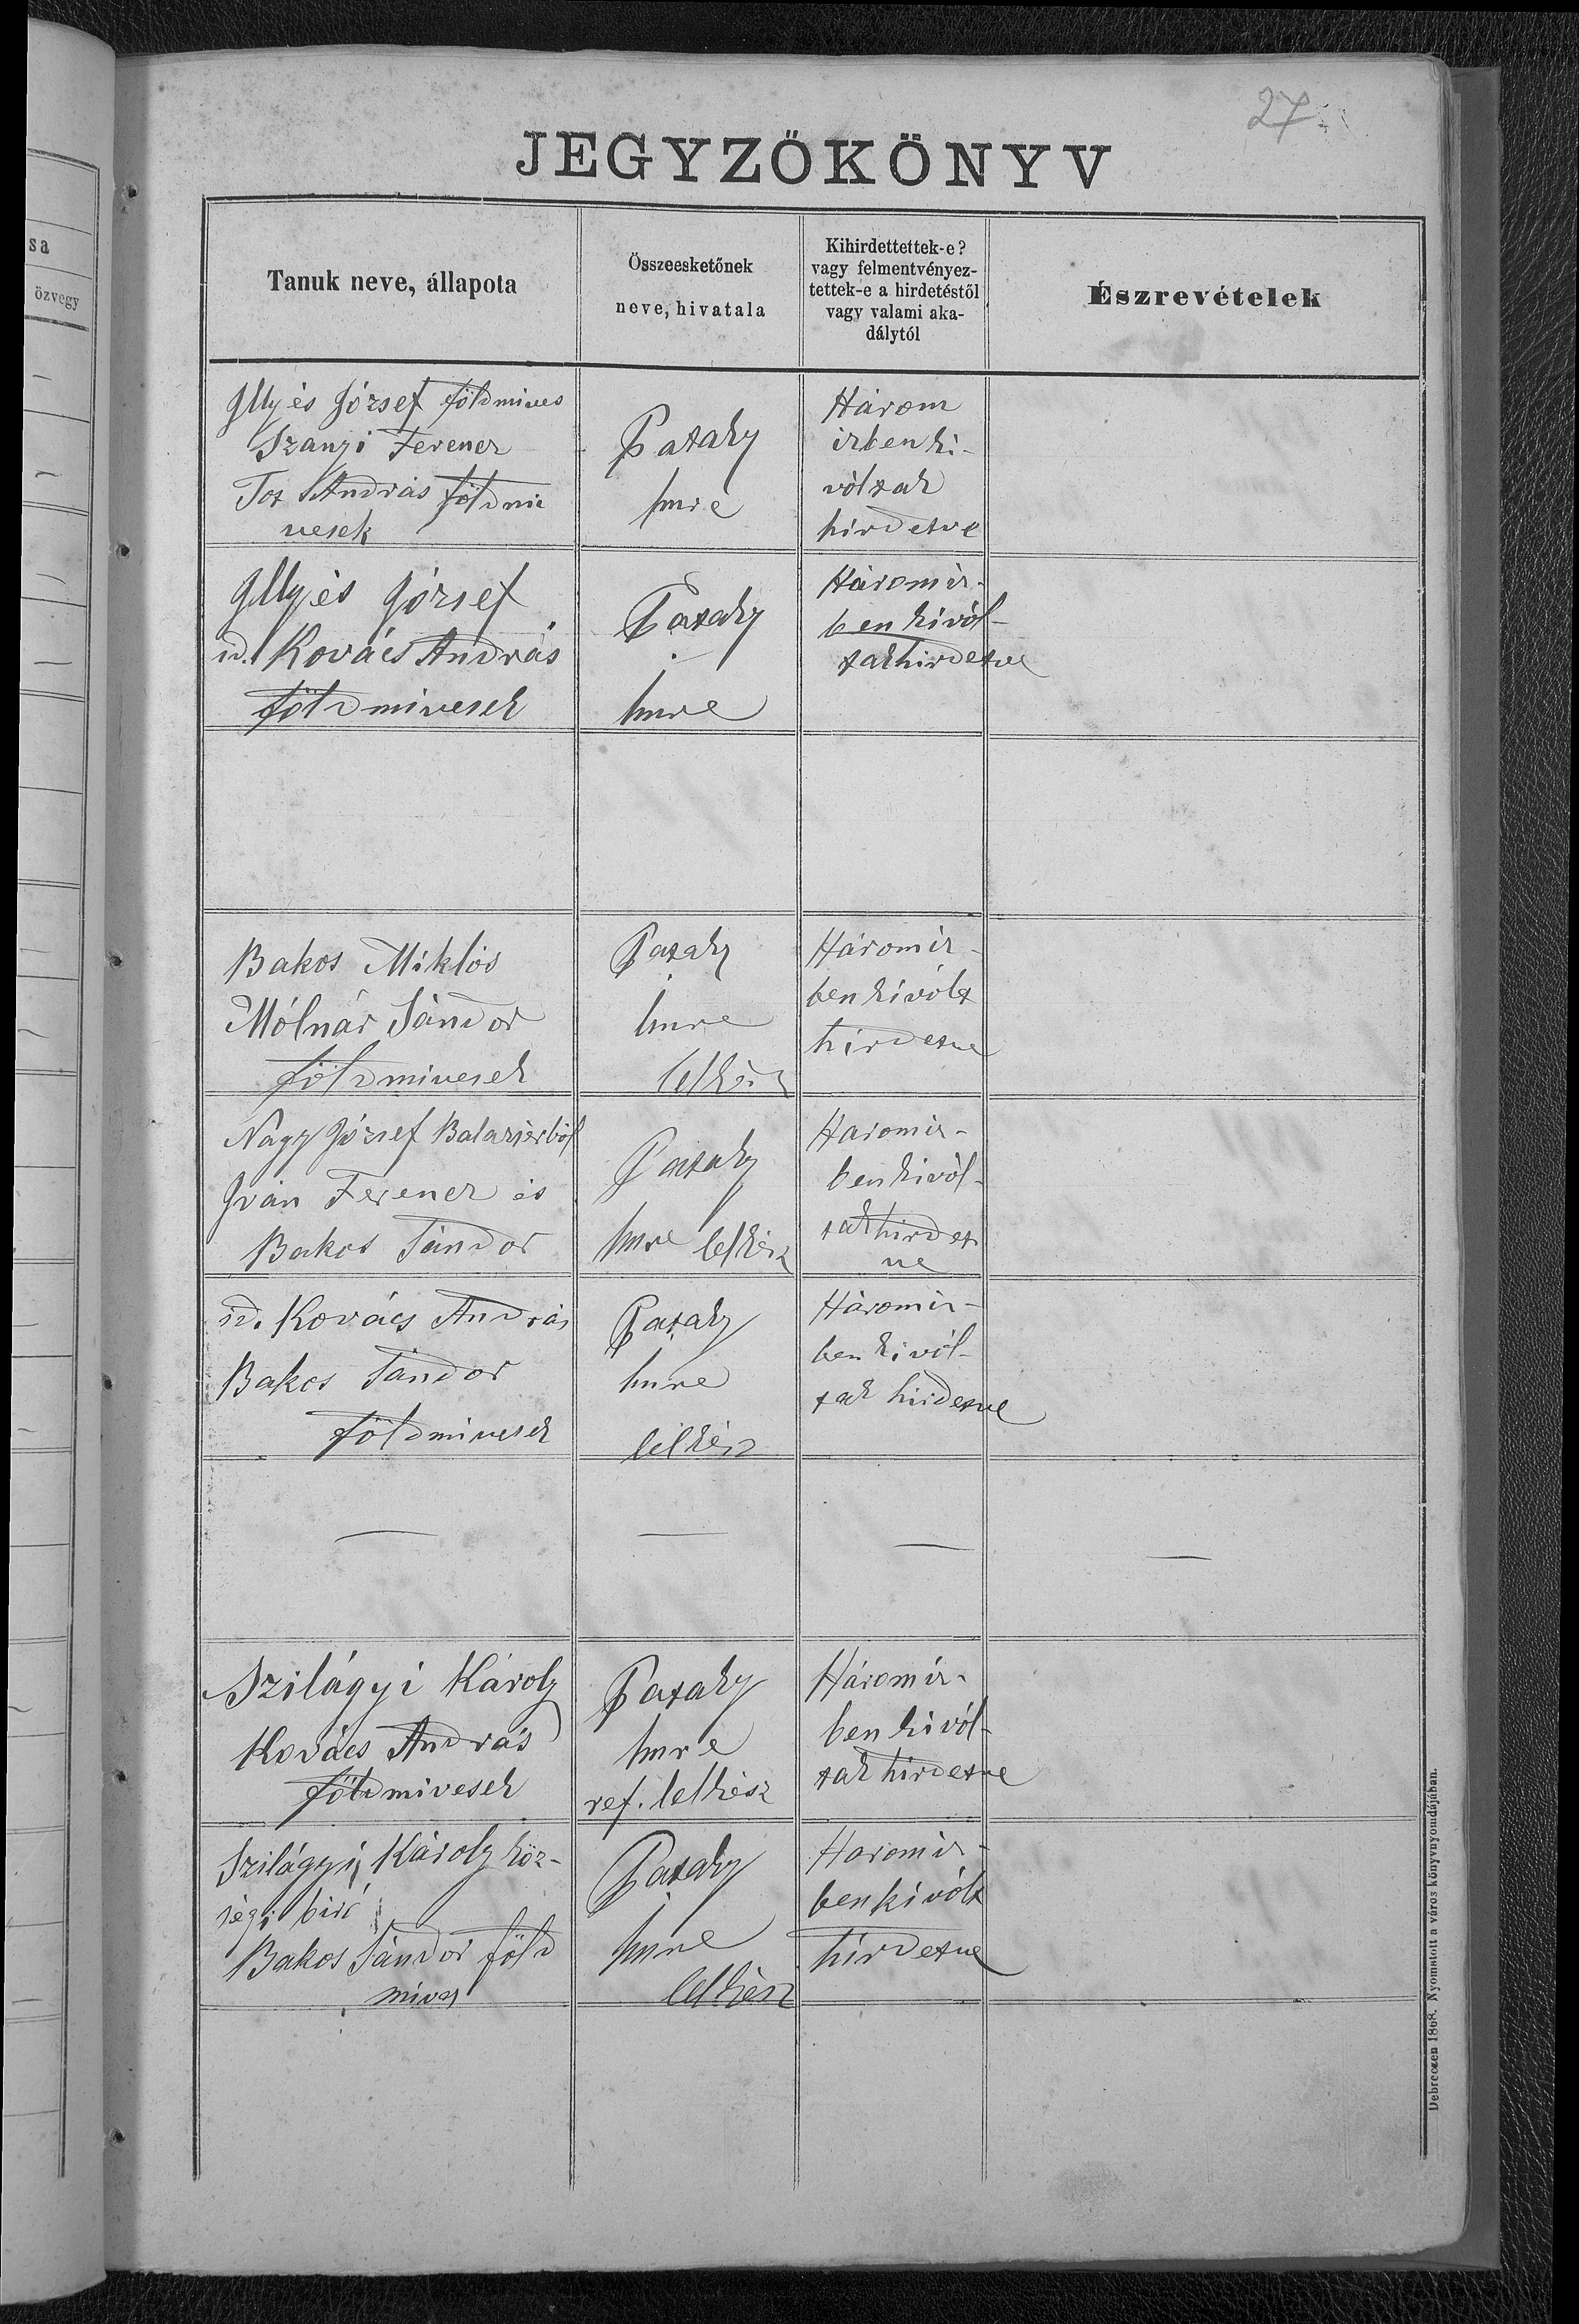 27.
JEGYZŐKÖNYV
Tanuk neve, állapota
Összeesketőnek
neve, hivatala
Kihirdettettek-e?
vagy felmentvényez-
tettek-e a hirdetéstől
vagy valami aka-
dálytól
Észrevételek
Illyés József földmives
Szanyi Ferencz
Tot András földmi
vesek
Pataky
Imre
Három
izben ki-
vóltak
hirdetve
Illyés József
id. Kovács András
földmivesek
Pataky
Imre
Háromiz-
ben kivól-
tak hirdetve
Bakos Miklós
Mólnár Sándor
földmivesek
Pataky
Imre
lelkész
Háromiz-
ben kivólt
hirdetve
Nagy József Balazsérból
Iván Ferencz és
Bakos Sándor
Pataky
Imre lelkész
Háromiz-
ben kivól-
tak hirdet
ve
id. Kovács András
Bakos Sándor
földmivesek
Pataky
Imre
lelkész
Háromiz-
ben kivól-
tak hirdetve
— — — —
Szilágyi Károly
Kovács András
földmivesek
Pataky
Imre
ref. lelkész
Háromiz-
ben kivól-
tak hirdetve
Szilágyi Károly köz-
ségi biró
Bakos Sándor föld
mives
Pataky
Imre
lelkész
Háromiz-
ben kivólt
hirdetve
Debreczen 1868. Nyomatott a város könyvnyomdájában.
sa
özvegy